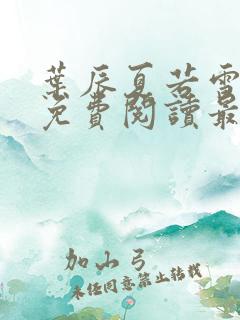 葉辰夏若雪
免費閱讀最
加小弓
未經同意禁止转载